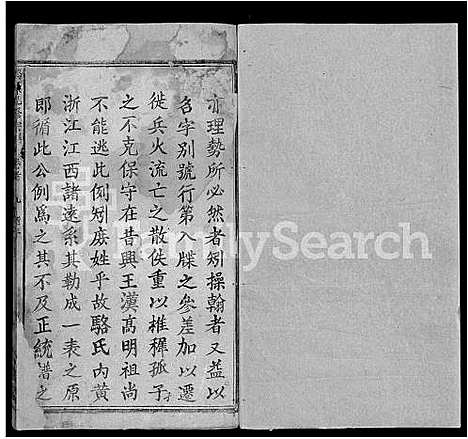 亦理勢所必然者矧操翰者又益以
名字別號行第入牒之參差加以遷
徙兵火流亡之散佚重以椎穉孤子
之不克保守在昔興王漢高明祖尚
不能逃此例矧庶姓乎故駱氏內黃
浙江江西諸遠系其勒成一表之原
即循此公例為之其不及正統譜之
FamilySearch